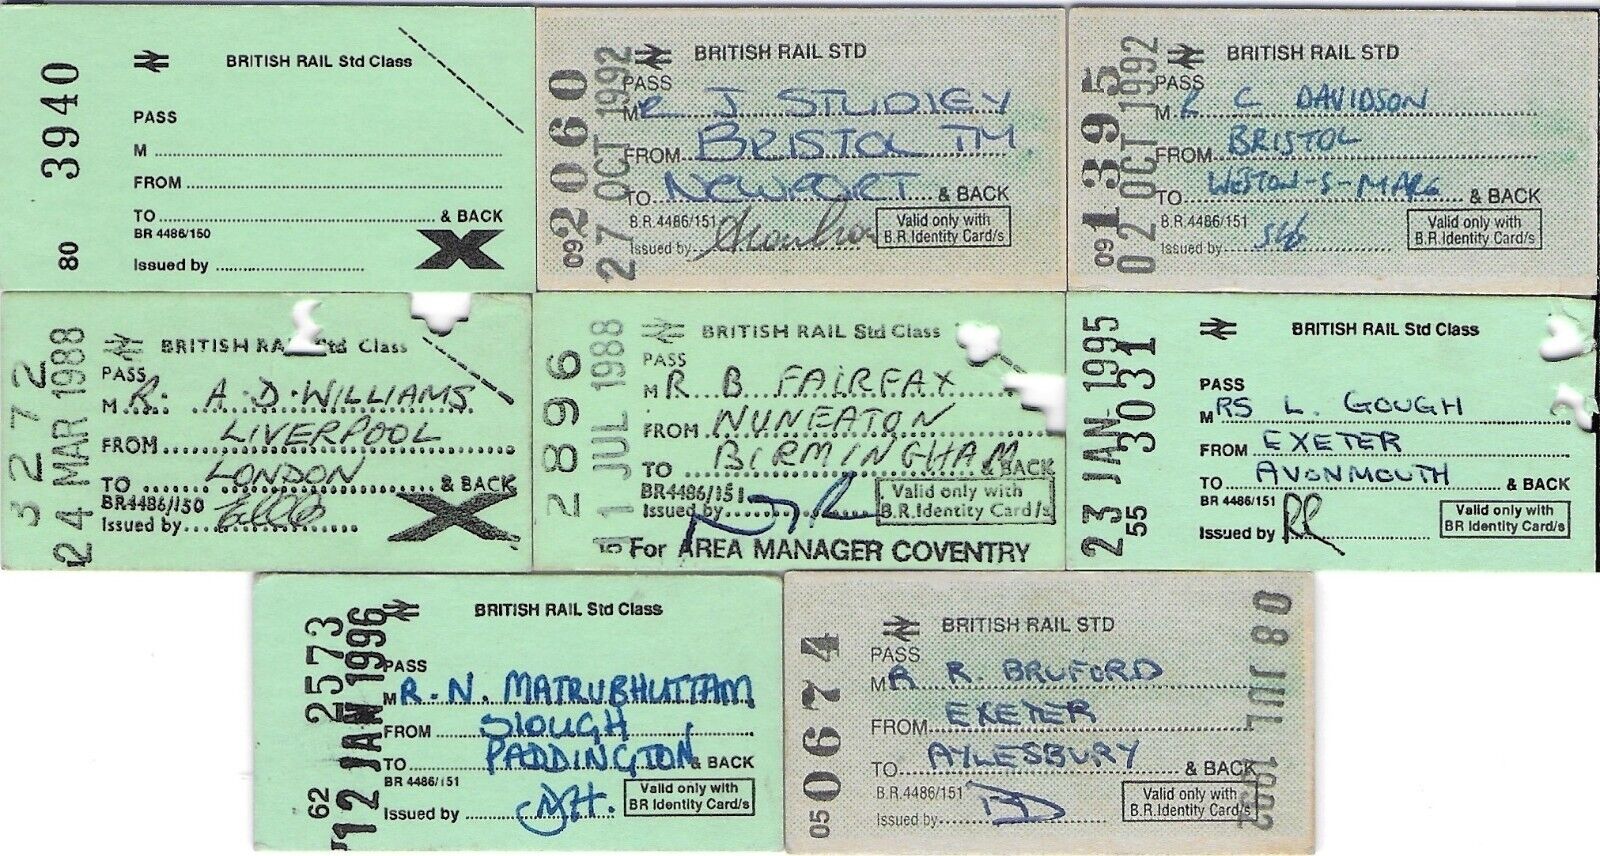 3940
80
BRITISH RAIL Std Class
PASS
M
FROM
TO & BACK
BR 4486/150
Issued by
2060
09
27 OCT 1992
BRITISH RAIL STD
PASS
Mr J STUDLEY
FROM BRISTOL TM.
TO NEWPORT & BACK
B.R.4486/151
Issued by
Valid only with
B.R.Identity Card/s
1395
09
02 OCT 1992
BRITISH RAIL STD
PASS
MR C DAVIDSON
FROM BRISTOL
TO WESTON-S-MARE & BACK
B.R.4486/151
Issued by
Valid only with
B.R.Identity Card/s
3272
24 MAR 1988
BRITISH RA Std Class
PASS
MR. A.D.WILLIAMS
FROM LIVERPOOL
TO LONDON & BACK
BR4486/150
Issued by
2896
1 JUL 1988
BRITISH RAIL Std Class
PASS
MR B FAIRFAX
FROM NUNEATON
TO BIRMINGHAM & BACK
BR4486/151
Issued by
Valid only with
B.R.Identity Card/s
For AREA MANAGER COVENTRY
3031
55
23 JAN 1995
BRITISH RAIL Std Class
PASS
MRS L. GOUGH
FROM EXETER
TO AVONMOUTH & BACK
BR 4486/151
Issued by
Valid only with
BR Identity Card/s
2573
62
12 JAN 1996
BRITISH RAIL Std Class
PASS
MR. N. MATRUBHUTTAM
FROM SLOUGH
TO PADDINGTON & BACK
BR 4486/151
Issued by
Valid only with
BR Identity Card/s
0674
05
08 JUL
BRITISH RAIL STD
PASS
MR R. BRUFORD
FROM EXETER
TO AYLESBURY & BACK
B.R.4486/151
Issued by
Valid only with
B.R.Identity Card/s